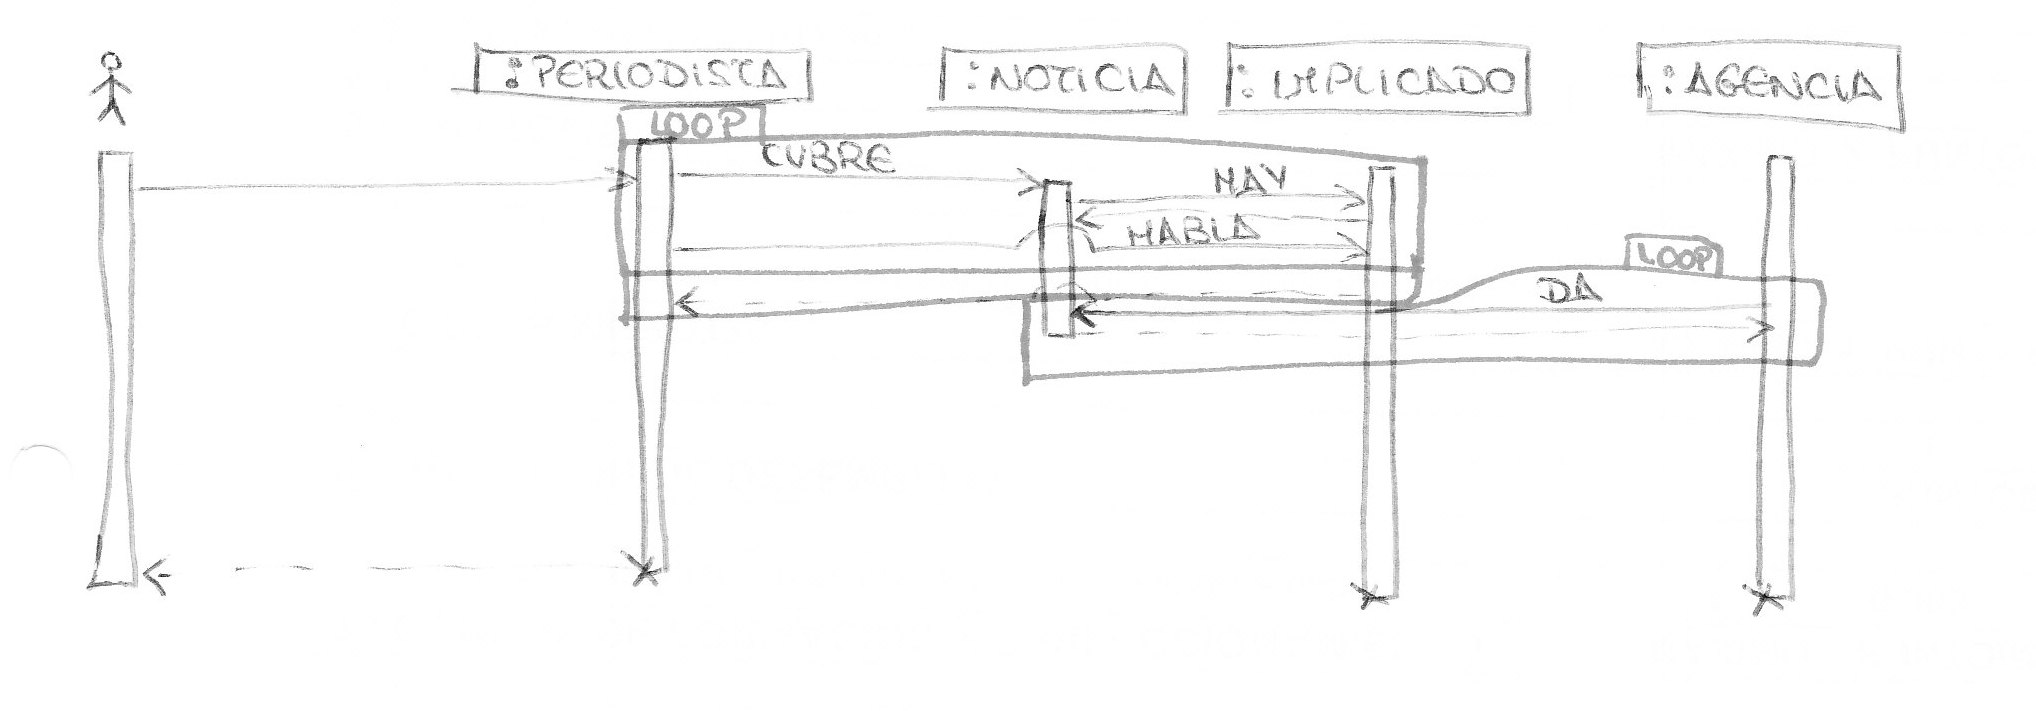 :PERIODISTA
:NOTICIA
:IMPLICADO
:AGENCIA
LOOP
CUBRE
HAY
HABLA
LOOP
DA